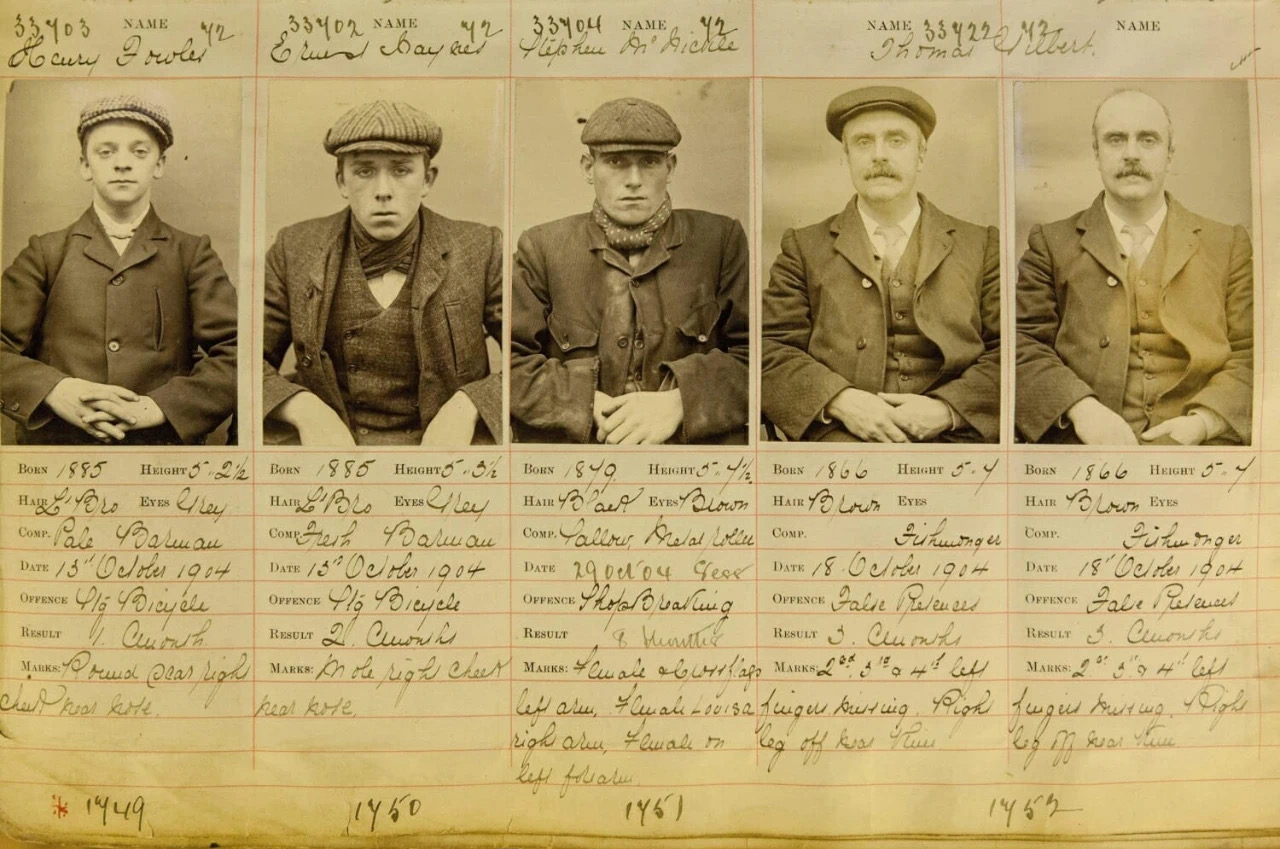 33703 NAME 72
Henry Fowler
Born 1885 Height 5-2½
Hair L'Bro Eyes Grey
Comp. Pale Barman
Date 13th October 1904
Offence Stg Bicycle
Result 1. Cmonth
Marks: Round scar right
cheek near nose.
* 1749
33702 NAME 72
Ernest Haynes
Born 1885 Height 5-3½
Hair L'Bro Eyes Grey
Comp. Fresh Barman
Date 13th October 1904
Offence Stg Bicycle
Result 2. Cmonths
Marks: Mole right cheek
near nose.
1750
33704 NAME 72
Stephen
Born 1879. Height 5-7½
Hair Black Eyes Brown
Comp. Sallow, Metal roller
Date 29 Oct '04 Sess
Offence Shop Breaking
Result 8 Months
Marks: Female & Cross flags
left arm, Female Louisa
right arm, Female on
left forearm
1751
NAME 33722 72
Thomas Gilbert.
Born 1866 Height 5-7
Hair Brown Eyes
Comp. Fishmonger
Date 18th October 1904
Offence False Pretences
Result 3. Cmonths
Marks: 2nd 3rd & 4th left
fingers missing. Right
leg off near knee
NAME
Born 1866 Height 5-7
Hair Brown Eyes
Comp. Fishmonger
Date 18th October 1904
Offence False Pretences
Result 3. Cmonths
Marks: 2nd 3rd & 4th left
fingers missing. Right
leg off near knee
1752